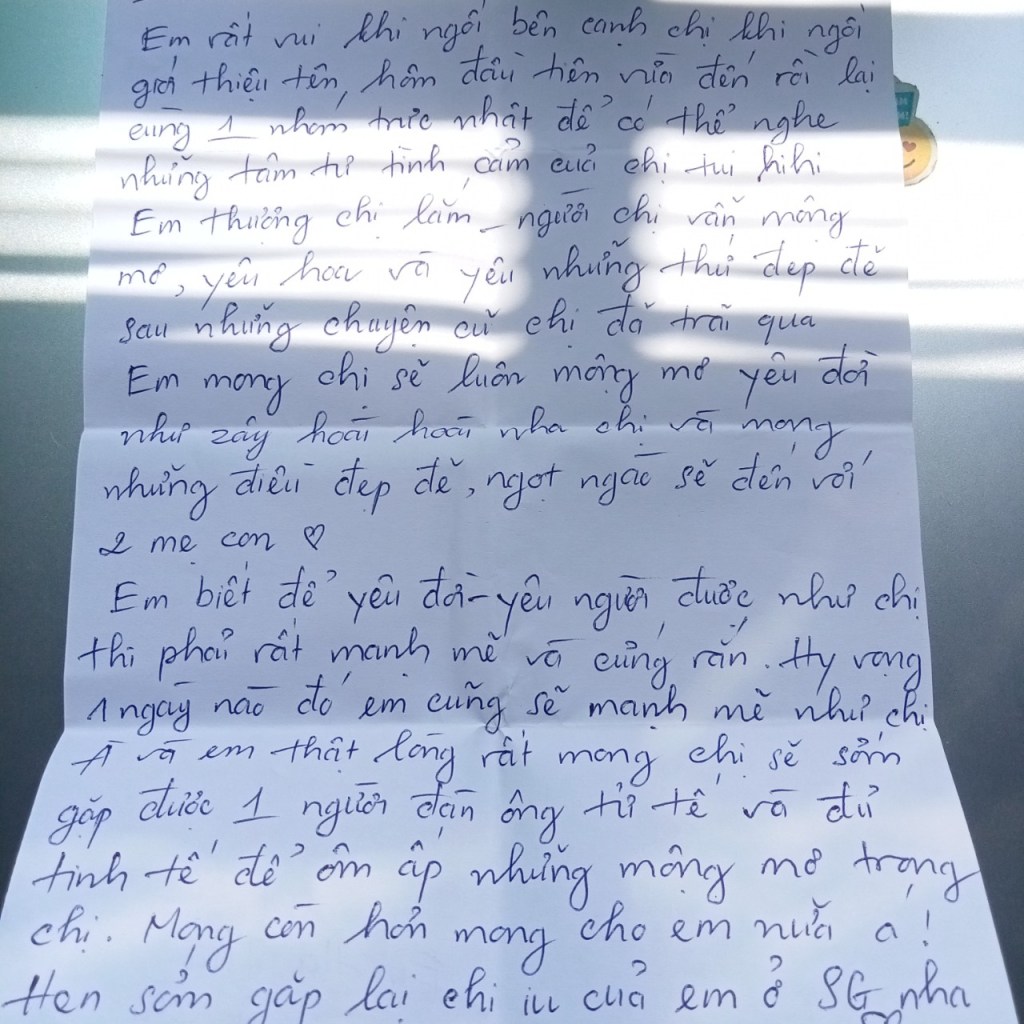 Em rất vui khi ngồi bên cạnh chị khi ngồi
giới thiệu tên, hôm đầu tiên vừa đến rồi lại
cùng 1 nhóm trực nhật để có thể nghe
những tâm tư tình cảm của chị tui hihi
Em thương chị lắm, người chị vẫn mộng
mơ, yêu hoa và yêu những thứ đẹp đẽ
sau những chuyện cũ chị đã trãi qua
Em mong chị sẽ luôn mộng mơ yêu đời
như zây hoài hoài nha chị và mong
những điều đẹp đẽ, ngọt ngào sẽ đến với
2 mẹ con ♡
Em biết để yêu đời - yêu người được như chị
thì phải rất mạnh mẽ và cứng rắn. Hy vọng
1 ngày nào đó em cũng sẽ mạnh mẽ như chị
À và em thật lòng rất mong chị sẽ sớm
gặp được 1 người đàn ông tử tế và đủ
tinh tế để ôm ấp những mộng mơ trong
chị. Mong còn hơn mong cho em nữa á!
Hẹn sớm gặp lại chị iu của em ở SG nha